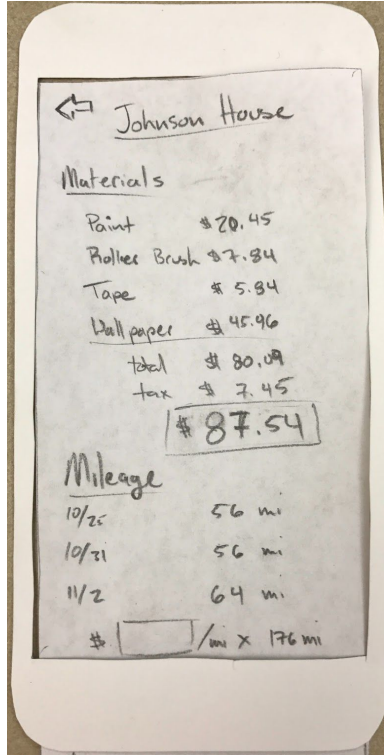 Johnson House
Materials
Paint $20.45
Roller Brush $7.84
Tape $5.84
Wallpaper $45.96
total $80.09
tax $7.45
$87.54
Mileage
10/25 56 mi
10/31 56 mi
11/2 64 mi
$ /mi x 176 mi